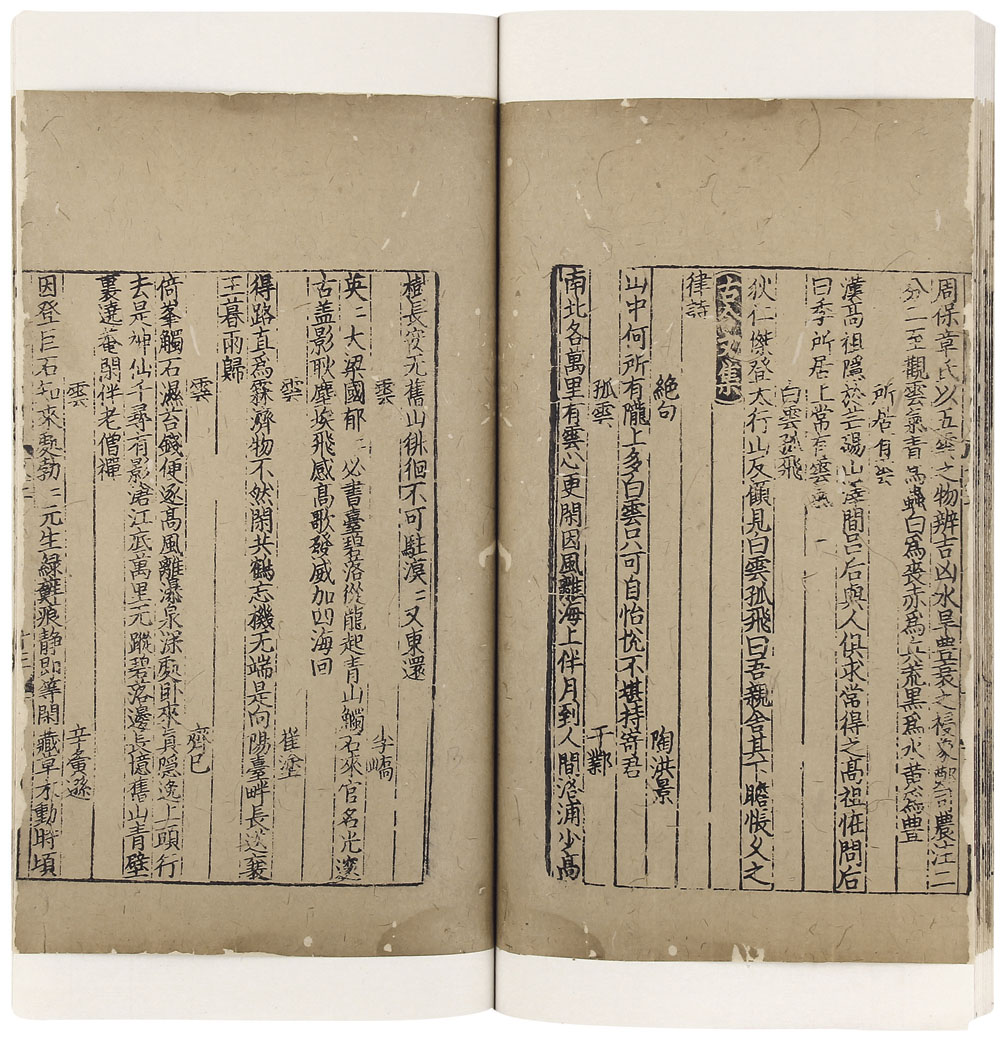 周保章氏以五雲之物辨吉凶水旱豊衰之祲象鄭司農注二
分二至觀雲氣青為蟲白為喪赤為兵荒黑為水黄為豊
所居有雲
漢高祖隱於芒碭山澤間吕后與人俱求常得之高祖恠問后
曰季所居上常有雲氣
白雲孤飛
狄仁傑登太行山反顧見白雲孤飛曰吾親舍其下瞻悵久之
古今文集
律詩
絶句
山中何所有隴上多白雲只可自怡悅不堪持寄君 陶洪景
孤雲 于鄴
南北各萬里有雲心更閑因風離海上伴月到人間洛浦少高
樹長安无舊山徘徊不可駐漠〻又東還
雲 李嶠
英〻大梁國郁〻必書臺碧落從龍起青山觸石來官名光邃
古盖影耿塵埃飛感髙歌發威加四海回
雲 崔塗
得路直為霖濟物不然閑共鶴忘機无端是向陽臺畔長送襄
王暮雨歸
雲 齊已
倚峯觸石濕苔錢便逐髙風離瀑泉深處卧來真隱逸上頭行
去是神仙千尋有影滄江底萬里无蹤碧落邊長憶舊山青壁
裏遶菴閑伴老僧禪
雲 辛夤遜
因登巨石知來處勃〻元生緑蘚痕静即等閑藏草木動時頃